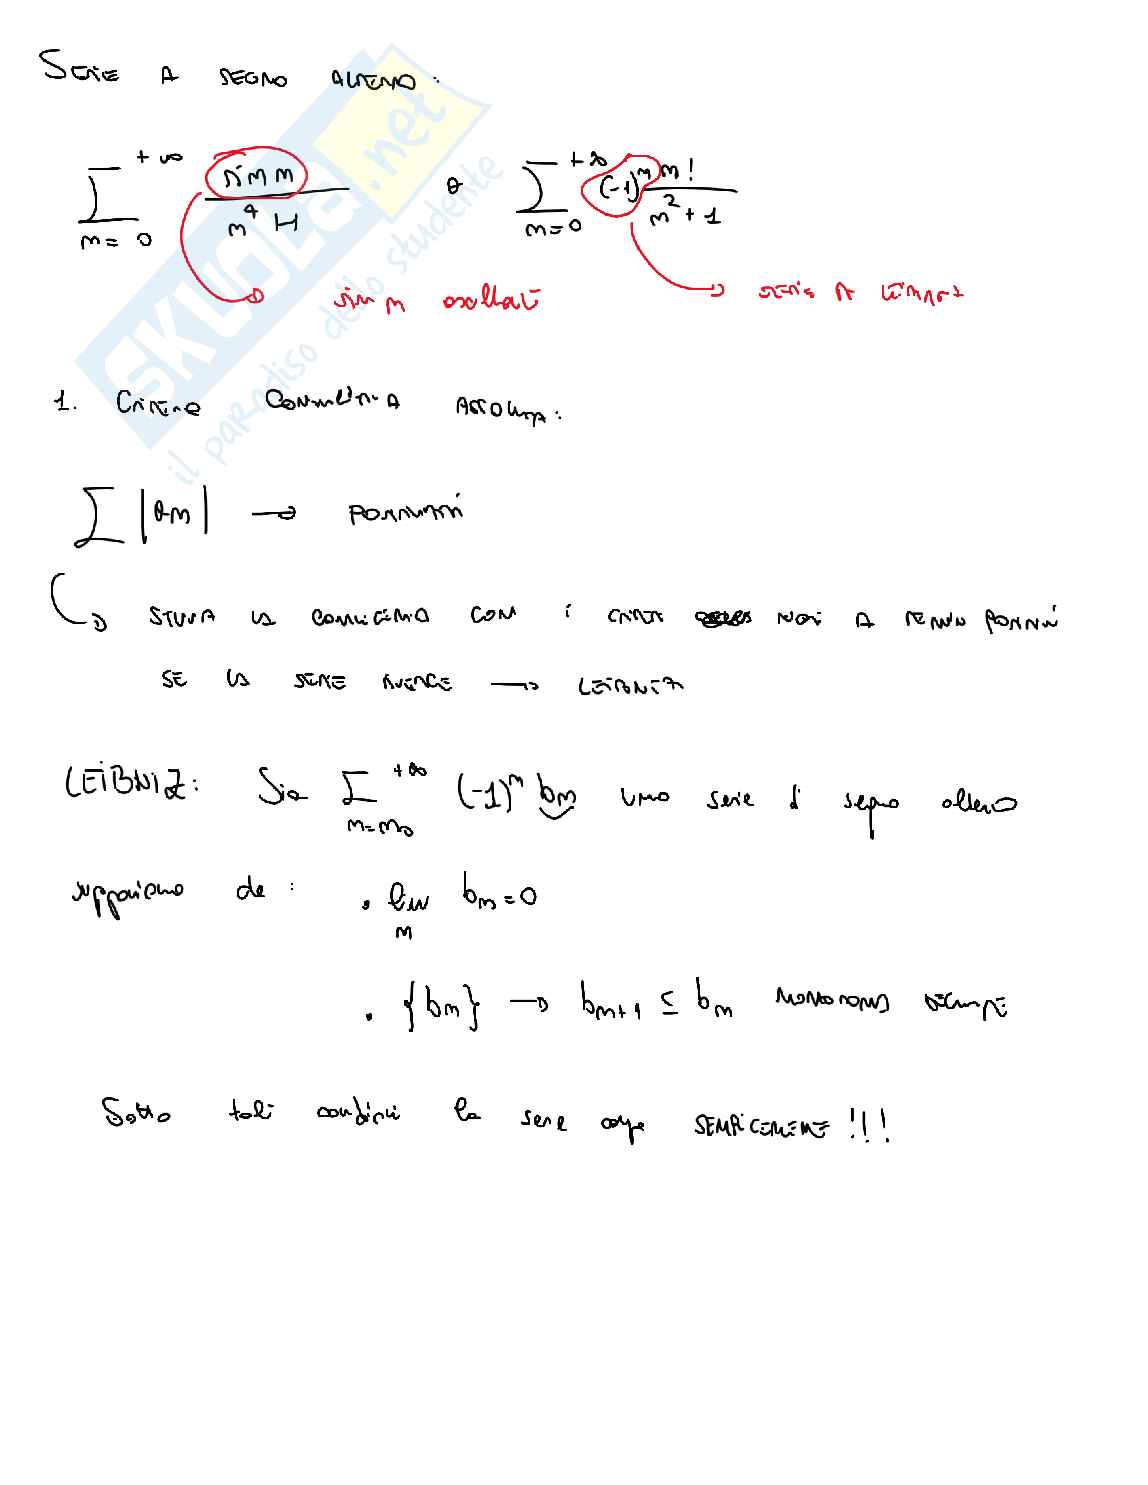 SERIE A SEGNO ALTERNO:
\sum_{n=0}^{+\infty} \frac{\sin n}{n^4+1} o \sum_{n=0}^{+\infty} (-1)^n \frac{n!}{n^2+1}
sin n oscillante
1. CRITERIO CONVERGENZA ASSOLUTA:
\sum |a_n| → 
STUDIA LA CON i
SE LA SERIE DIVERGE → LEIBNIZ
LEIBNIZ: Sia \sum_{n=n_0}^{+\infty} (-1)^n b_n una serie di segno alterno
supponiamo che: • \lim_n b_n = 0
• {b_n} → b_{n+1} ≤ b_n MONOTONA
Sotto tali condizioni la serie SEMPLICEMENTE!!!
SKUOLA.net
il paradiso dello studente